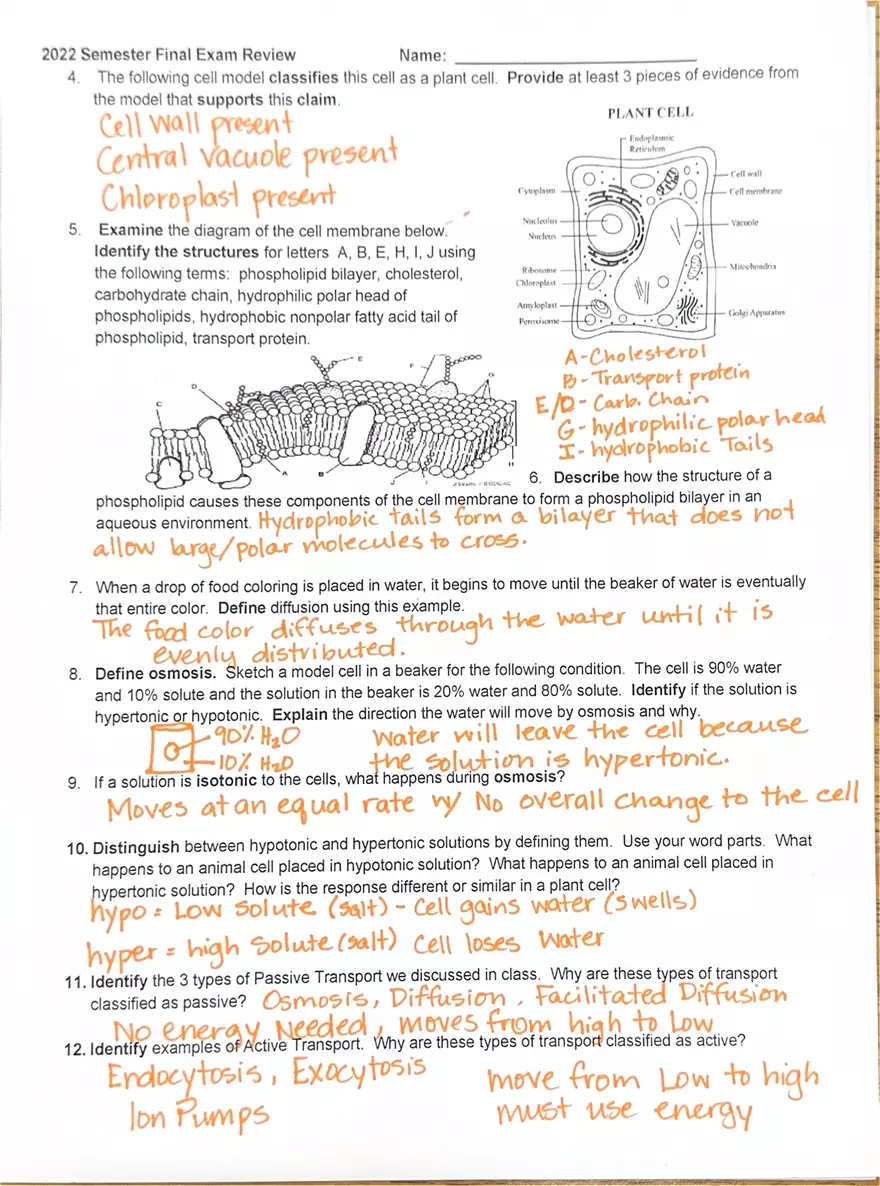 2022 Semester Final Exam Review Name:
4. The following cell model classifies this cell as a plant cell. Provide at least 3 pieces of evidence from
the model that supports this claim.
Cell Wall present
Central Vacuole present
Chloroplast present
PLANT CELL
Endoplasmic
Reticulum
Cell wall
Cell membrane
Cytoplasm
Vacuole
Nucleolus
Nucleus
Mitochondria
Ribosome
Chloroplast
Amyloplast
Golgi Apparatus
Peroxisome
5. Examine the diagram of the cell membrane below.
Identify the structures for letters A, B, E, H, I, J using
the following terms: phospholipid bilayer, cholesterol,
carbohydrate chain, hydrophilic polar head of
phospholipids, hydrophobic nonpolar fatty acid tail of
phospholipid, transport protein.
A-Cholesterol
B-Transport protein
E/D- Carb. Chain
G- hydrophilic polar head
I- hydrophobic Tails
E
F
G
D
C
A
B
J
I
H
6. Describe how the structure of a
phospholipid causes these components of the cell membrane to form a phospholipid bilayer in an
aqueous environment. Hydrophobic tails form a bilayer that does not
allow large/polar molecules to cross.
7. When a drop of food coloring is placed in water, it begins to move until the beaker of water is eventually
that entire color. Define diffusion using this example.
The food color diffuses through the water until it is
evenly distributed.
8. Define osmosis. Sketch a model cell in a beaker for the following condition. The cell is 90% water
and 10% solute and the solution in the beaker is 20% water and 80% solute. Identify if the solution is
hypertonic or hypotonic. Explain the direction the water will move by osmosis and why.
90% H2O Water will leave the cell because
10% H2O the solution is hypertonic.
9. If a solution is isotonic to the cells, what happens during osmosis?
Moves at an equal rate w/ No overall change to the cell
10. Distinguish between hypotonic and hypertonic solutions by defining them. Use your word parts. What
happens to an animal cell placed in hypotonic solution? What happens to an animal cell placed in
hypertonic solution? How is the response different or similar in a plant cell?
hypo = Low Solute (salt) - Cell gains water (swells)
hyper = high Solute (salt) Cell loses Water
11. Identify the 3 types of Passive Transport we discussed in class. Why are these types of transport
classified as passive? Osmosis, Diffusion, Facilitated Diffusion
No energy Needed, moves from high to Low
12. Identify examples of Active Transport. Why are these types of transport classified as active?
Endocytosis, Exocytosis move from Low to high
Ion Pumps must use energy